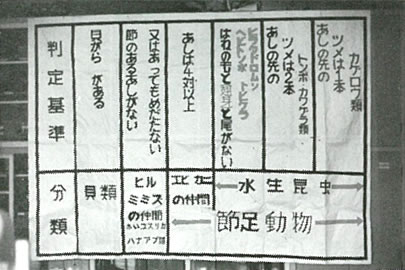 判定基準
貝がら がある
節のあるあしがない
又はあってもめだたない
あしは4対以上
はねの芽と
尾がない
ヘビトンボ トビケラ
あしの先の
ツメは2本
トンボ カワゲラ類
あしの先の
ツメは1本
カゲロウ類
分類
貝類
ヒル
ミミズ
の仲間
ハナアブ類
エビ カニ
の仲間
←水生昆虫→
←節足動物→